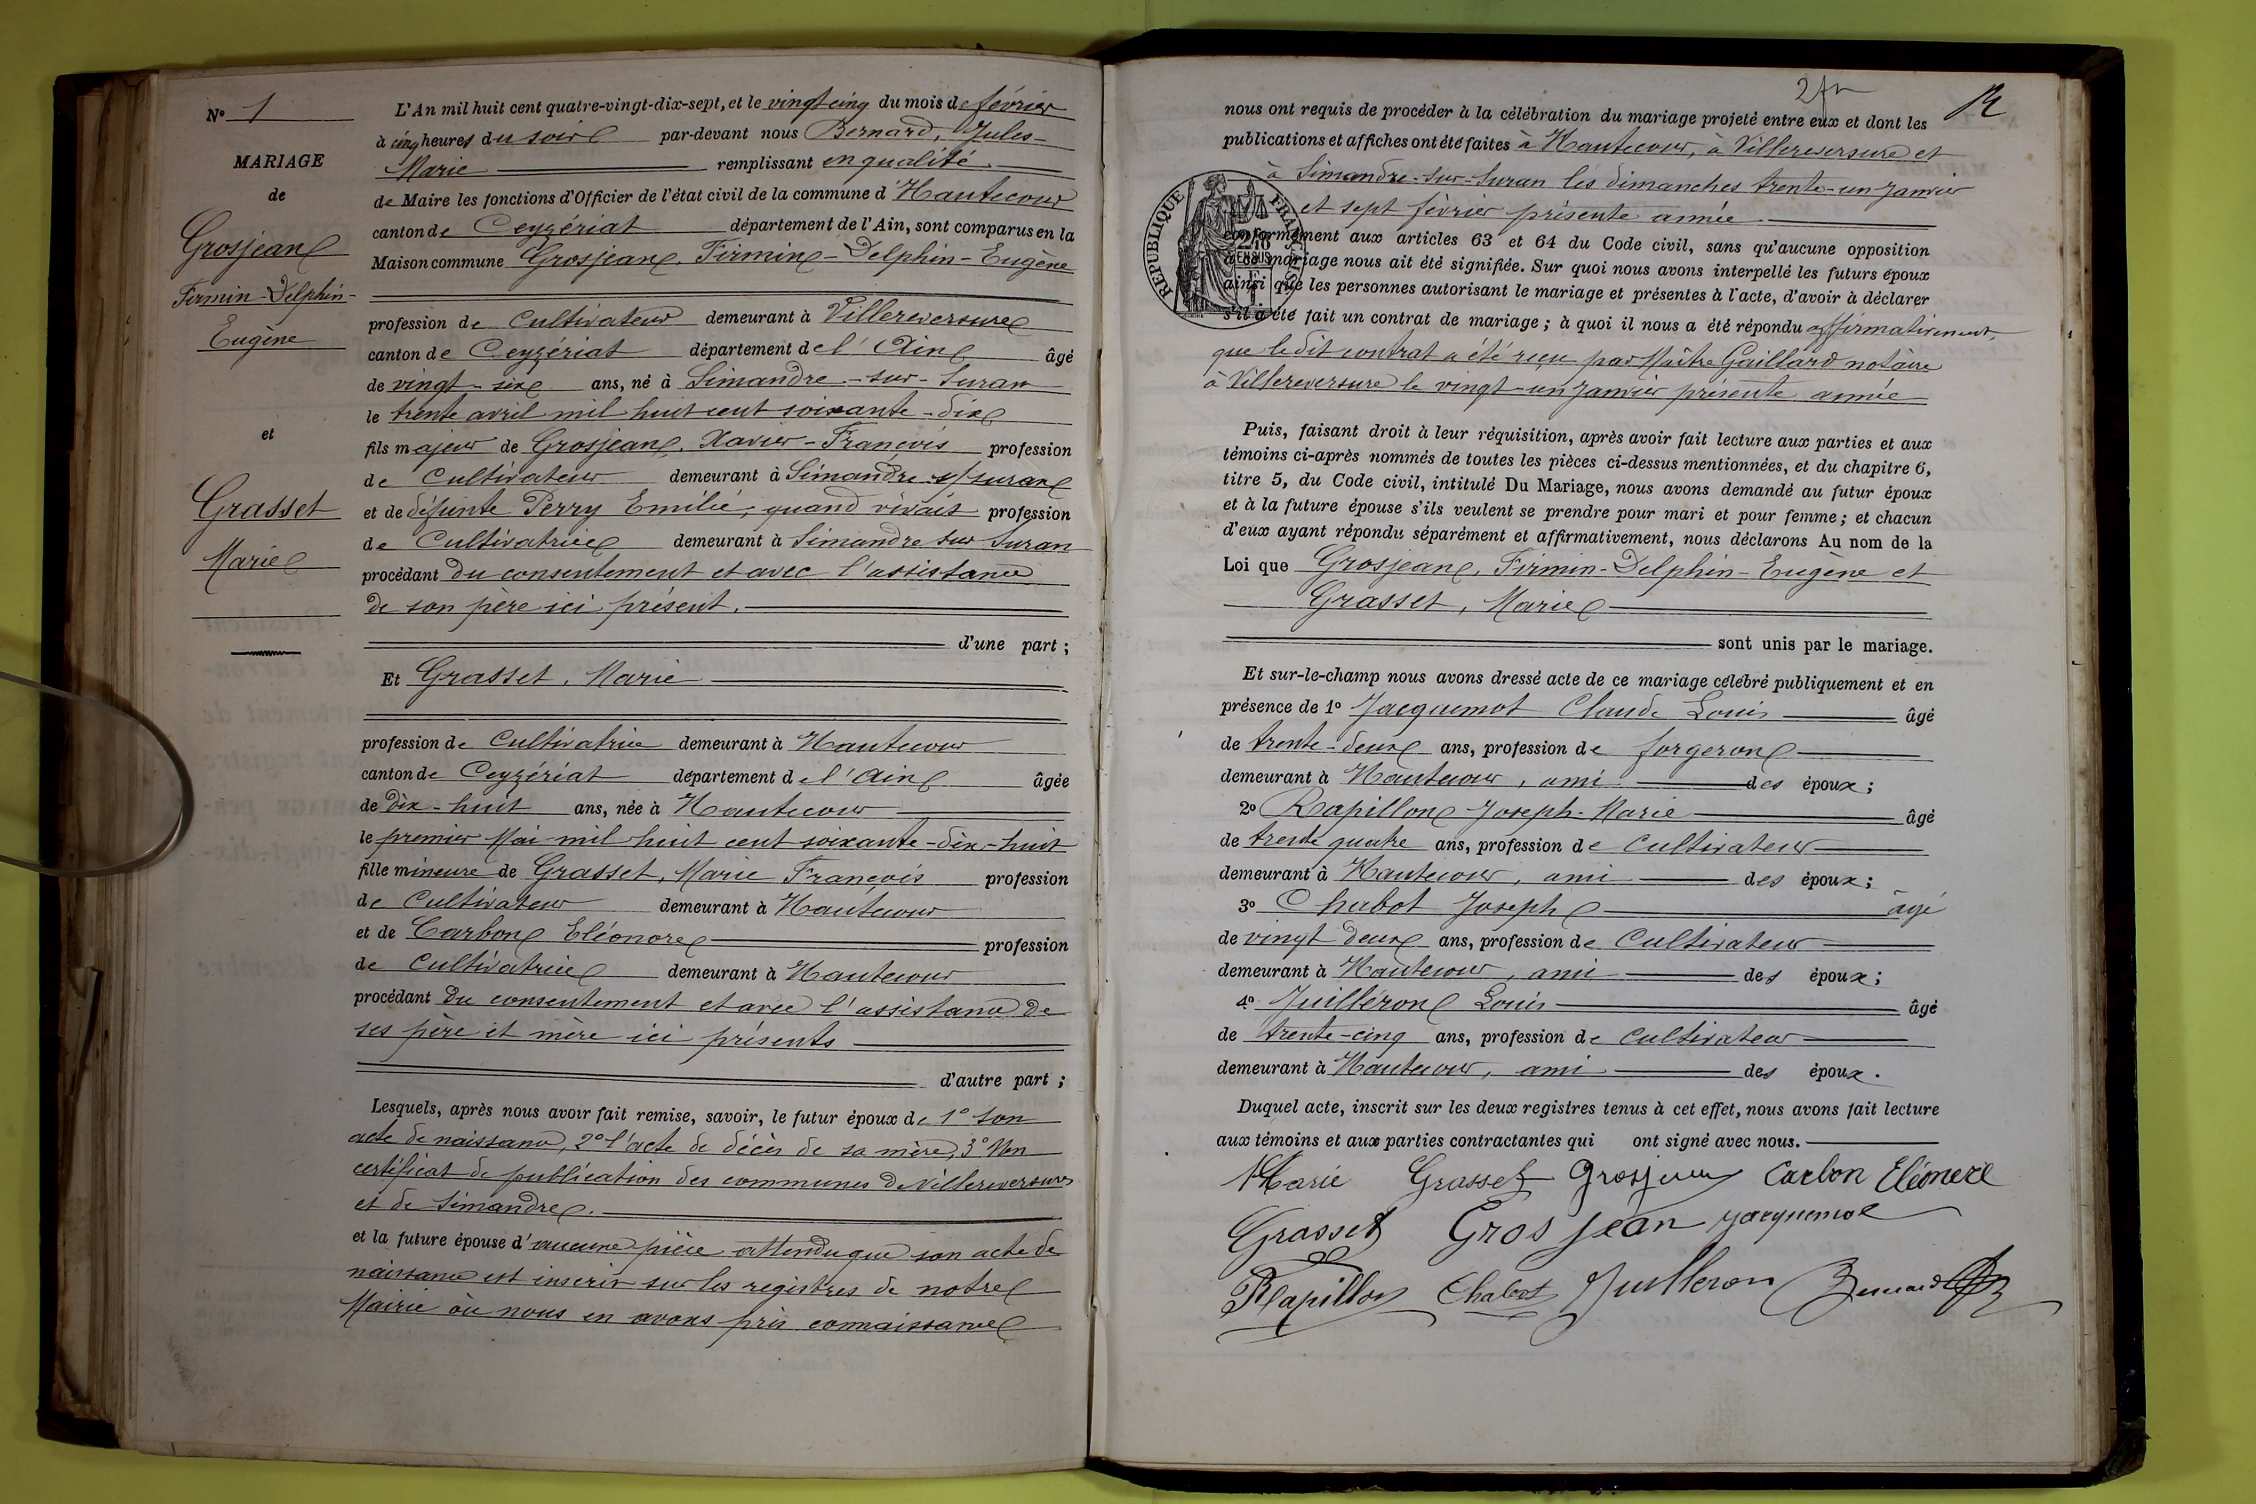 N° 1
MARIAGE
de
Grosjean
Firmin-Delphin-
Eugène
et
Grasset
Marie
L'An mil huit cent quatre-vingt-dix-sept, et le vingt cinq du mois de février
à cinq heures du soir par-devant nous Bernard, Jules-
Marie remplissant en qualité
de Maire les fonctions d'Officier de l'état civil de la commune d'Hautecour
canton de Ceyzériat département de l'Ain, sont comparus en la
Maison commune Grosjean, Firmin-Delphin-Eugène
profession de Cultivateur demeurant à Villereversure
canton de Ceyzériat département de l'Ain âgé
de vingt-six ans, né à Simandre-sur-Suran
le trente avril mil huit cent soixante-dix
fils majeur de Grosjean, Xavier-François profession
de Cultivateur demeurant à Simandre s/ suran
et de défunte Perry Emilie, quand vivait profession
de Cultivatrice demeurant à Simandre sur Suran
procédant du consentement et avec l'assistance
de son père ici présent.
d'une part ;
Et Grasset, Marie
profession de Cultivatrice demeurant à Hautecour
canton de Ceyzériat département de l'Ain âgée
de Dix-huit ans, née à Hautecour
le premier Mai mil huit cent soixante-dix-huit
fille mineure de Grasset, Marie François profession
de Cultivateur demeurant à Hautecour
et de Carbon Eléonore profession
de Cultivatrice demeurant à Hautecour
procédant du consentement et avec l'assistance de
ses père et mère ici présents
d'autre part ;
Lesquels, après nous avoir fait remise, savoir, le futur époux de 1° son
acte de naissance, 2° l'acte de décès de sa mère, 3° Un
certificat de publication des communes de Villereversure
et de Simandre.
et la future épouse d'aucune pièce attendu que son acte de
naissance est inscrit sur les registres de notre
Mairie où nous en avons pris connaissance
2
nous ont requis de procéder à la célébration du mariage projeté entre eux et dont les
publications et affiches ont été faites à Hautecour, à Villereversure et
à Simandre-sur-Suran les dimanches trente-un Janvier
et sept février présente année
REPUBLIQUE FRANÇAISE
conformément aux articles 63 et 64 du Code civil, sans qu'aucune opposition
à ce mariage nous ait été signifiée. Sur quoi nous avons interpellé les futurs époux
ainsi que les personnes autorisant le mariage et présentes à l'acte, d'avoir à déclarer
s'il a été fait un contrat de mariage ; à quoi il nous a été répondu affirmativement,
que ledit contrat a été reçu par Maître Gaillard notaire
à Villereversure le vingt-un Janvier présente année
Puis, faisant droit à leur réquisition, après avoir fait lecture aux parties et aux
témoins ci-après nommés de toutes les pièces ci-dessus mentionnées, et du chapitre 6,
titre 5, du Code civil, intitulé Du Mariage, nous avons demandé au futur époux
et à la future épouse s'ils veulent se prendre pour mari et pour femme ; et chacun
d'eux ayant répondu séparément et affirmativement, nous déclarons Au nom de la
Loi que Grosjean, Firmin-Delphin-Eugène et
Grasset, Marie
sont unis par le mariage.
Et sur-le-champ nous avons dressé acte de ce mariage célébré publiquement et en
présence de 1° Jacquemot Claude Louis âgé
de trente-deux ans, profession de forgeron
demeurant à Hautecour, ami des époux ;
2° Rapillon Joseph-Marie âgé
de trente quatre ans, profession de Cultivateur
demeurant à Hautecour, ami des époux ;
3° Chabot Joseph âgé
de vingt deux ans, profession de Cultivateur
demeurant à Hautecour, ami des époux ;
4° Juilleron Louis âgé
de trente-cinq ans, profession de Cultivateur
demeurant à Hautecour, ami des époux.
Duquel acte, inscrit sur les deux registres tenus à cet effet, nous avons fait lecture
aux témoins et aux parties contractantes qui ont signé avec nous.
Marie Grasset Grosjean Carbon Eléonore
Grasset Gros jean Jacquemot
Rapillon Chabot Juilleron Bernard